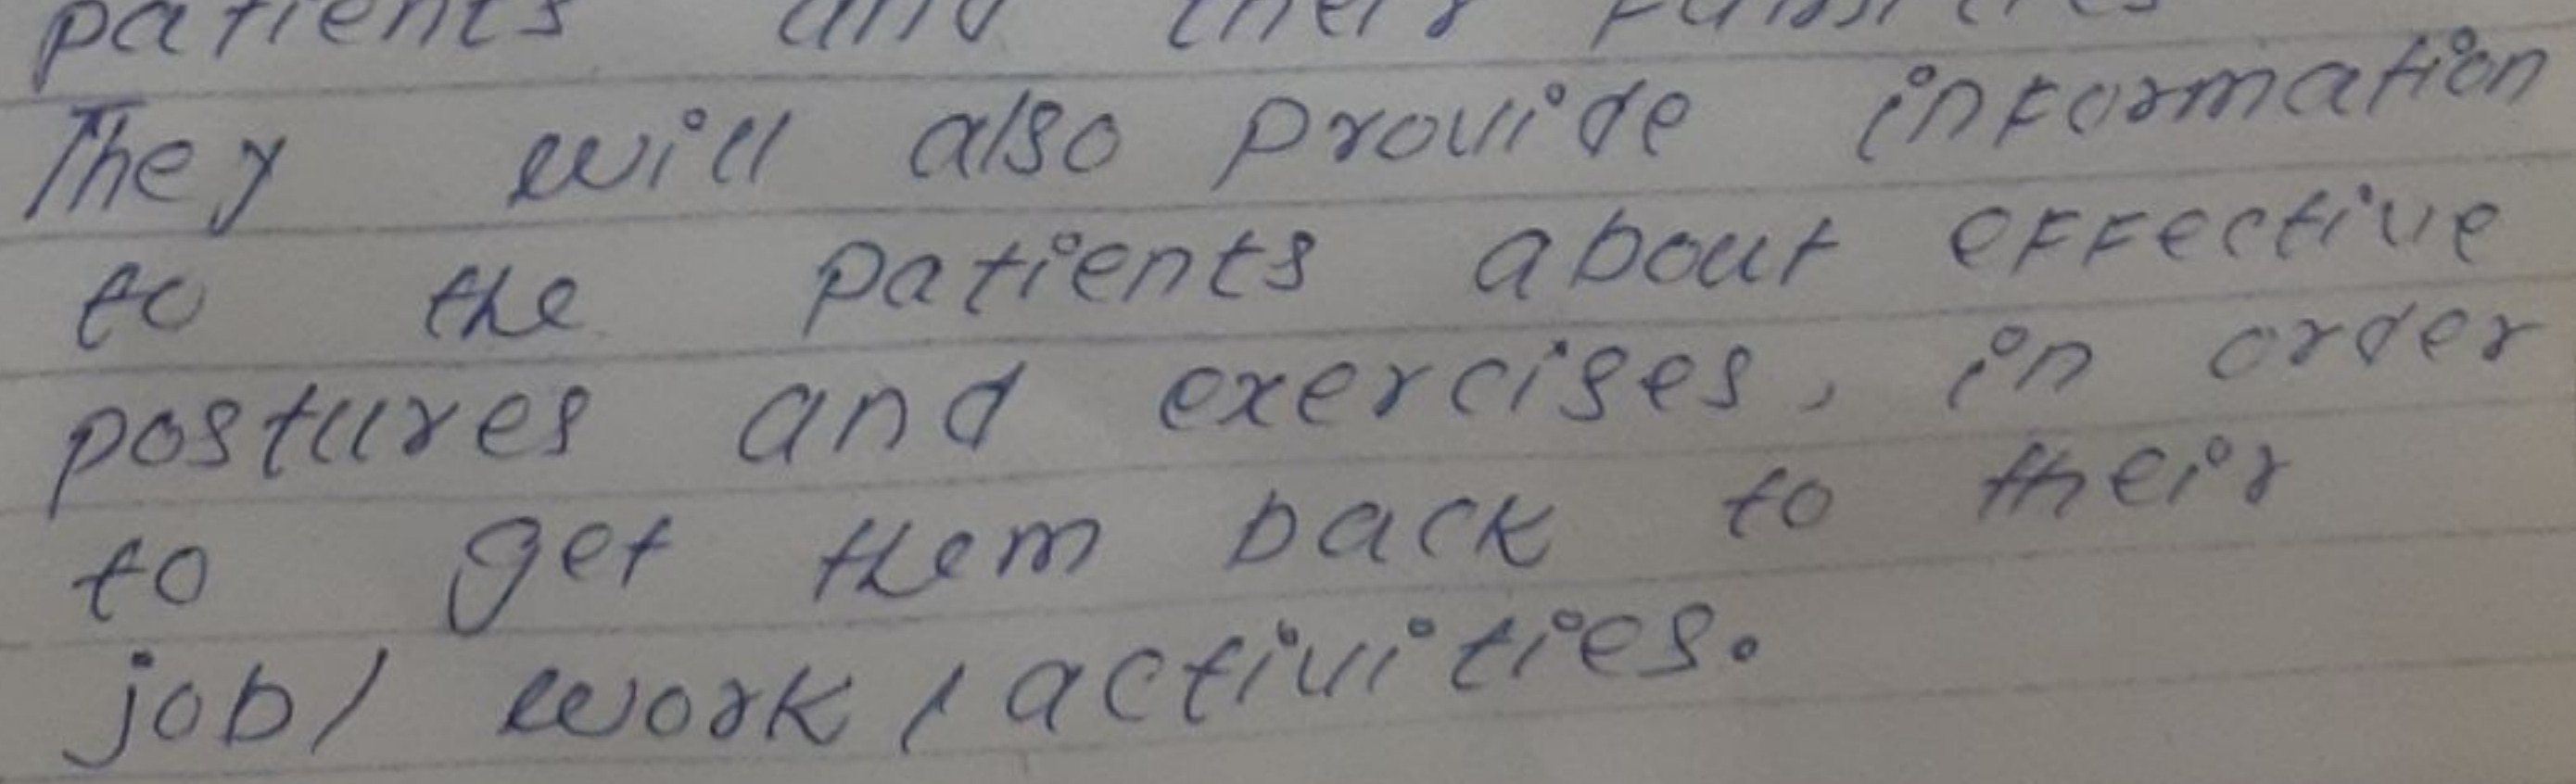 patients and their families
They will also provide information
to the patients about effective
postures and exercises, in order
to get them back to their
job/ work / activities.